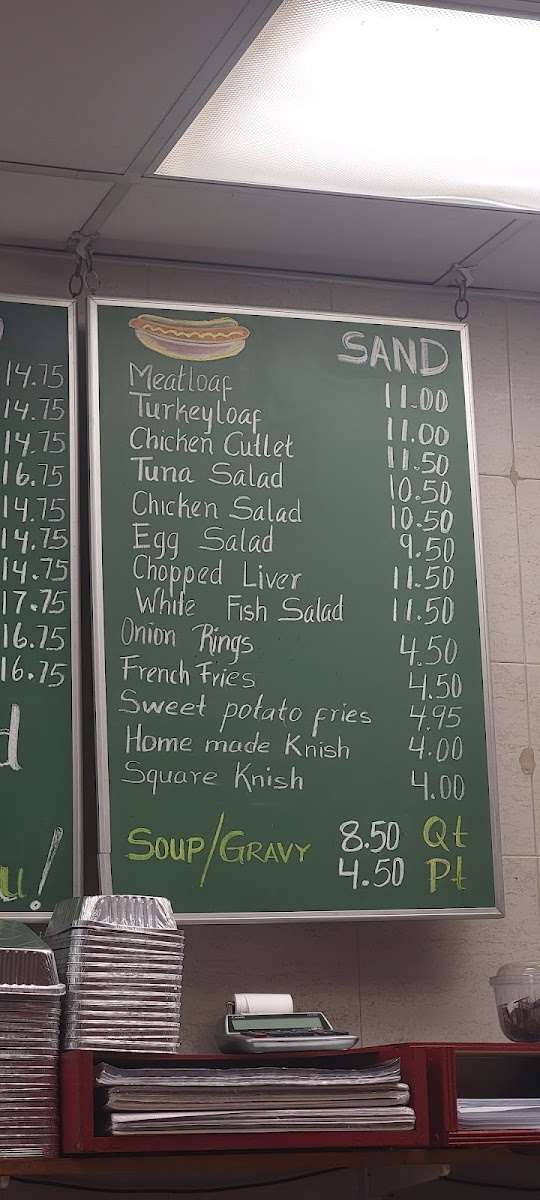 14.75
14.75
14.75
16.75
14.75
14.75
14.75
17.75
16.75
16.75
d
u!
SAND
Meatloaf 11.00
Turkeyloaf 11.00
Chicken Cutlet 11.50
Tuna Salad 10.50
Chicken Salad 10.50
Egg Salad 9.50
Chopped Liver 11.50
White Fish Salad 11.50
Onion Rings 4.50
French Fries 4.50
Sweet potato fries 4.95
Home made Knish 4.00
Square Knish 4.00
SOUP/GRAVY 8.50 Qt
4.50 Pt